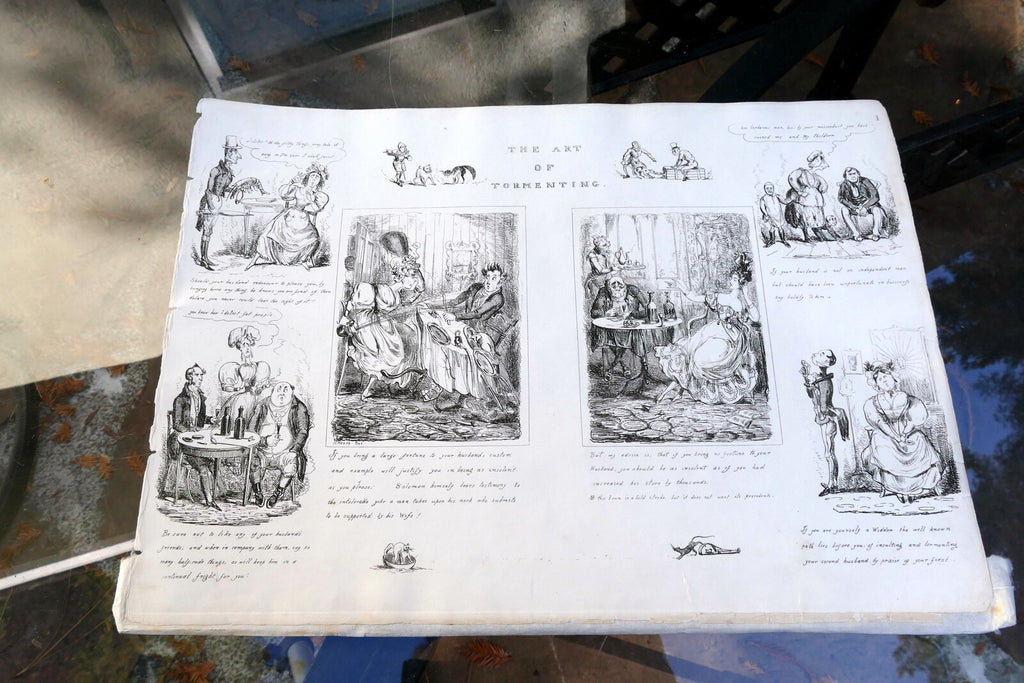 THE ART
OF
TORMENTING.
1
ruined me and my Children
Should your husband endeavour to please you, by
bringing home any thing
you never could bear the sight of it
you know how I detest fat people
Be sure not to like any of your husband's
friends, and when in company with them, say so
many half-rude things, as will keep him in a
continual fright for you!
If you bring a large fortune to your husband, custom
and example will justify you in being as insolent
as you please. Solomon himself bears testimony to
the intolerable yoke a man takes upon his neck who submits
to be supported by his Wife.!
But my advice is, that if you bring no fortune to your
Husband, you should be as insolent as if you had
increased his store by thousands.
this is a bold stroke, but it does not want its precedents.
If your husband is not an independent man
but should have been unfortunate in business
say boldly to him
If you are yourself a Widow the well known
path lies before you, of insulting and tormenting
your second husband by praise of your first.